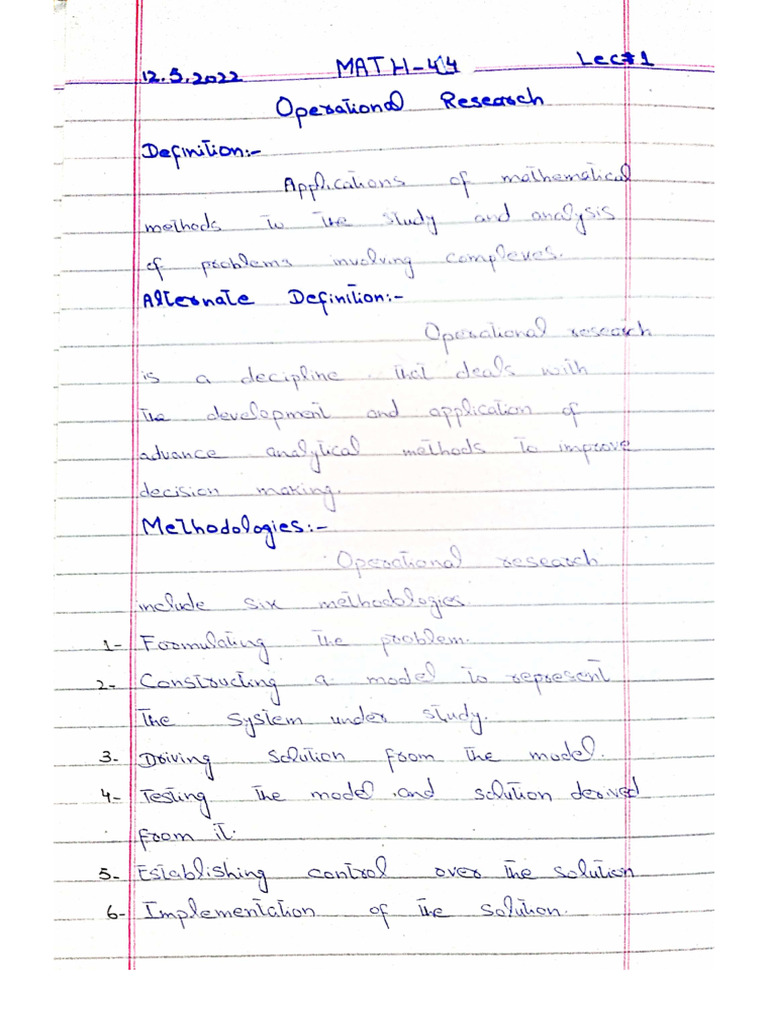 12.5.2022 MATH-44 Lec#1
Operational Research
Definition:-
Applications of mathematical
methods to the study and analysis
of problems involving complexes.
Alternate Definition:-
Operational research
is a decipline that deals with
the development and application of
advance analytical methods to improve
decision making.
Methodologies:-
Operational research
include six methodologies
1- Formulating the problem.
2- Constructing a model to represent
the system under study.
3- Driving solution from the model.
4- Testing the model and solution derived
from it.
5- Establishing control over the solution
6- Implementation of the solution.